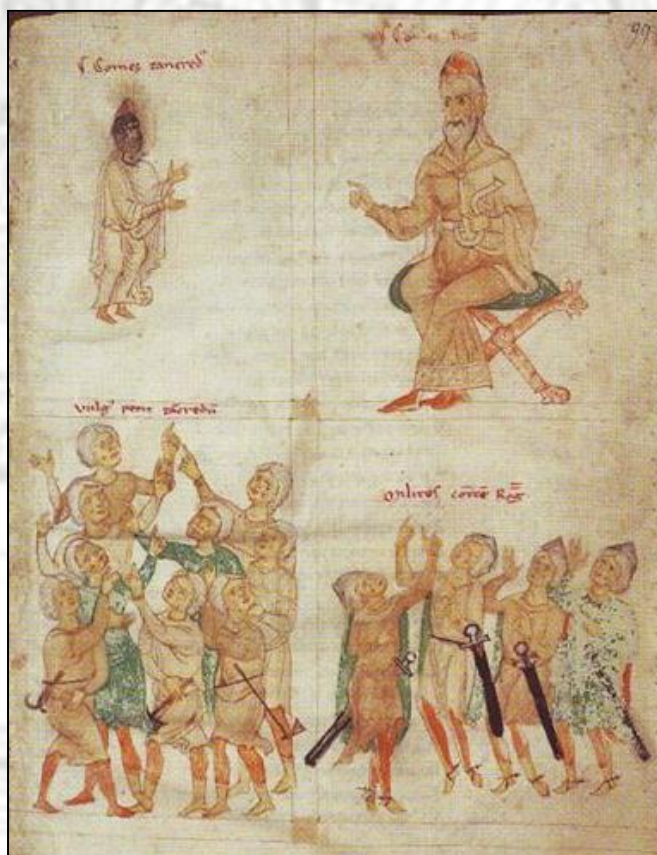 Comes tancred'
Comes
99
vulg' petit tācredū
Milites comitē Rog